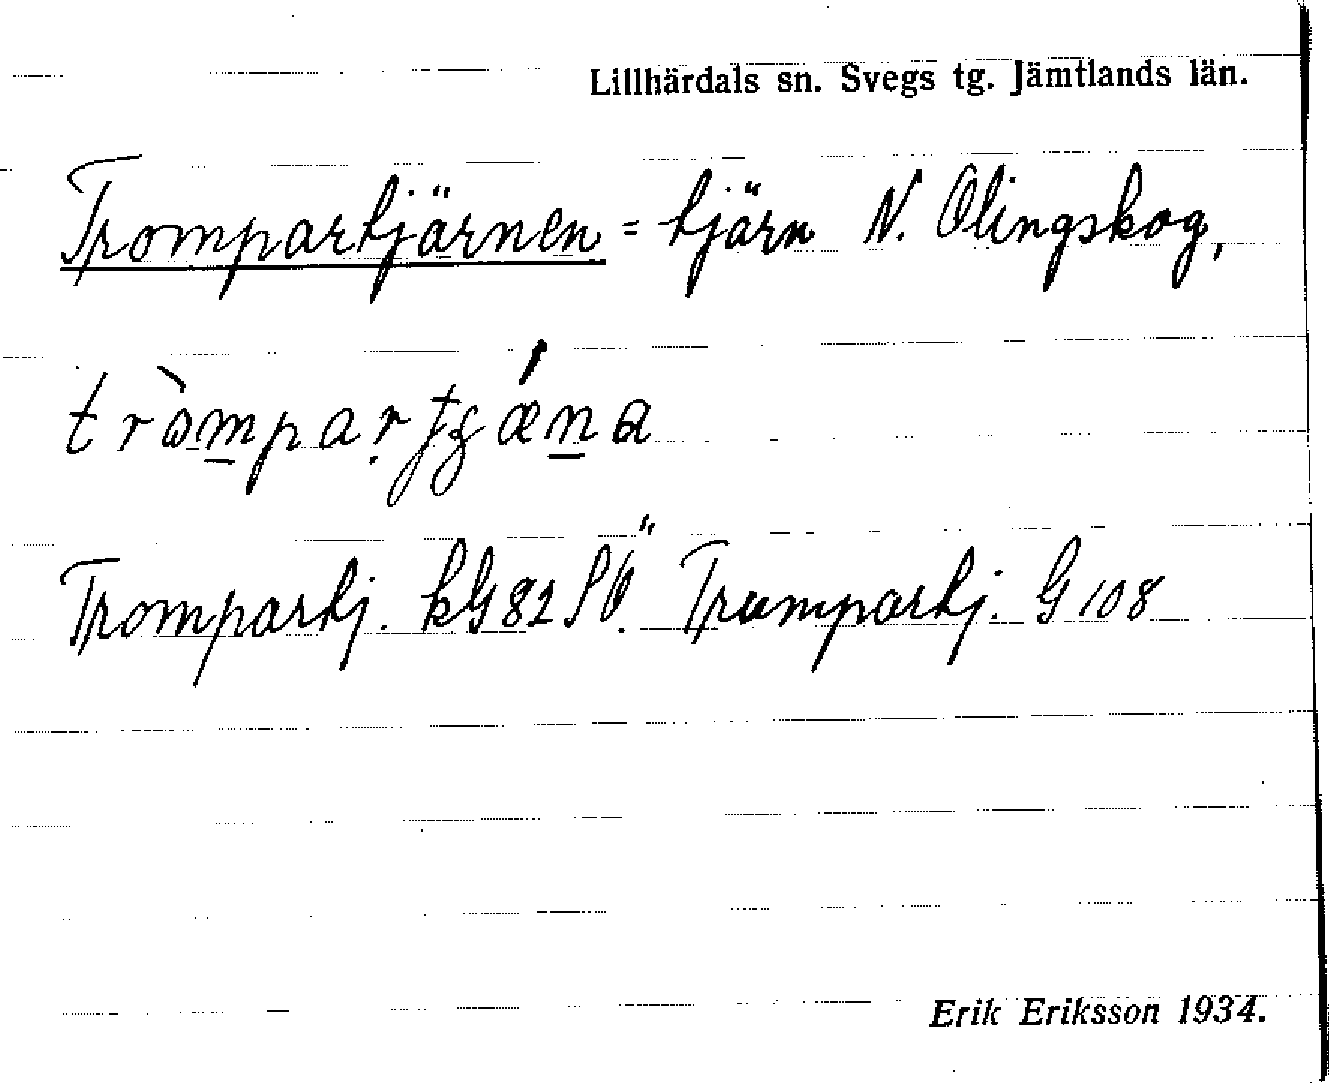 Lillhärdals sn. Svegs tg. Jämtlands län.
Trompartjärnen = tjärn N. Olingskog,
Trompartj. kG82SÖ. Trumpartj. G108
Erik Eriksson 1934.